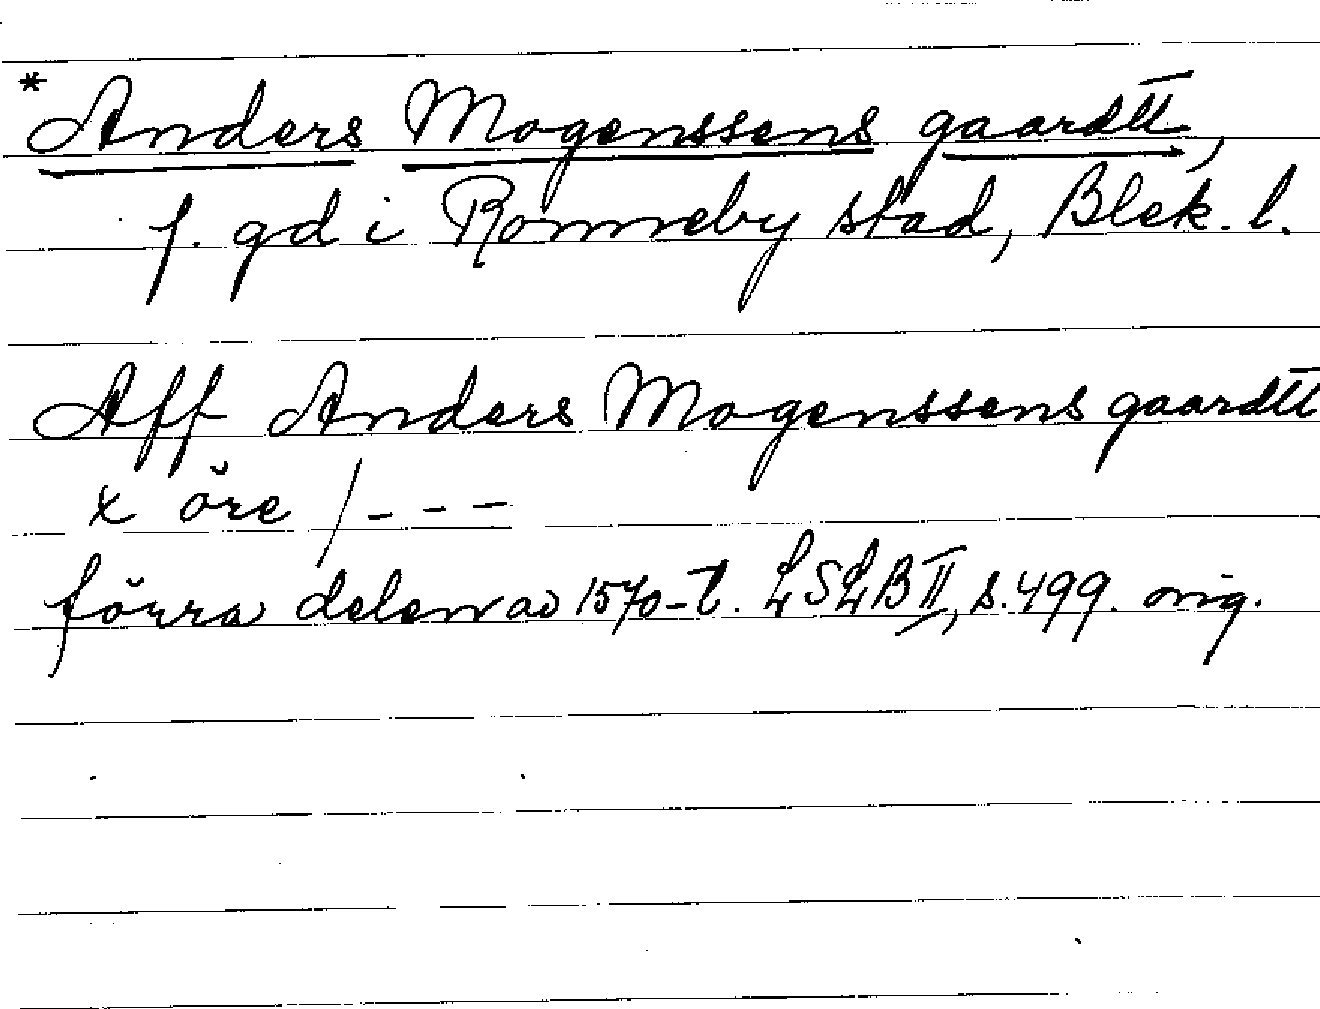 * Anders Mogenssens gaardtt,
f. gd i Ronneby stad, Blek. l.
Aff Anders Mogenssens gaardtt
x öre /---
förra delen av 1570-t. LSLB II, s. 499. orig.